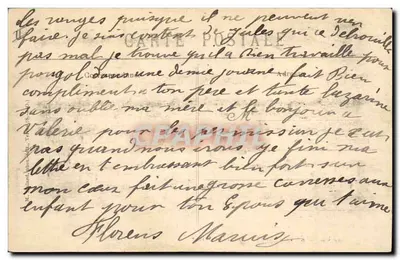 les rouges puisque il ne peuvent rien
faire. je suis content Jules qui ce debrouille
CARTE POSTALE
pas mal je trouve qu'il a bien travaillé pour
dans une demie journee fait Bien
compliment a ton père et tante Lazarine
sans oublier ma mère et le bonjour a
Valerie pour les permission je
pas quand nous irons je fini ma
lettre en t'embrassant bien fort sur
mon cœur fait une grosse carresses aux
enfant pour ton Epoux qui t'aime
Florens Marius